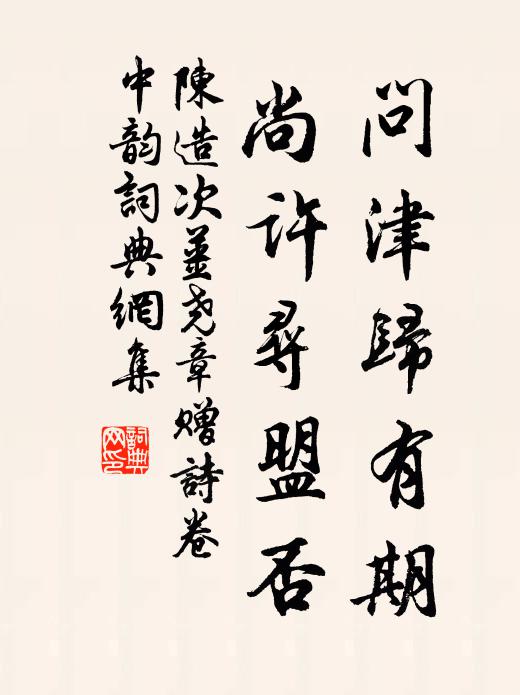 問津歸有期
尚許尋盟否
陳造次姜堯章贈詩卷
中韵詞典網集
詞典
网印